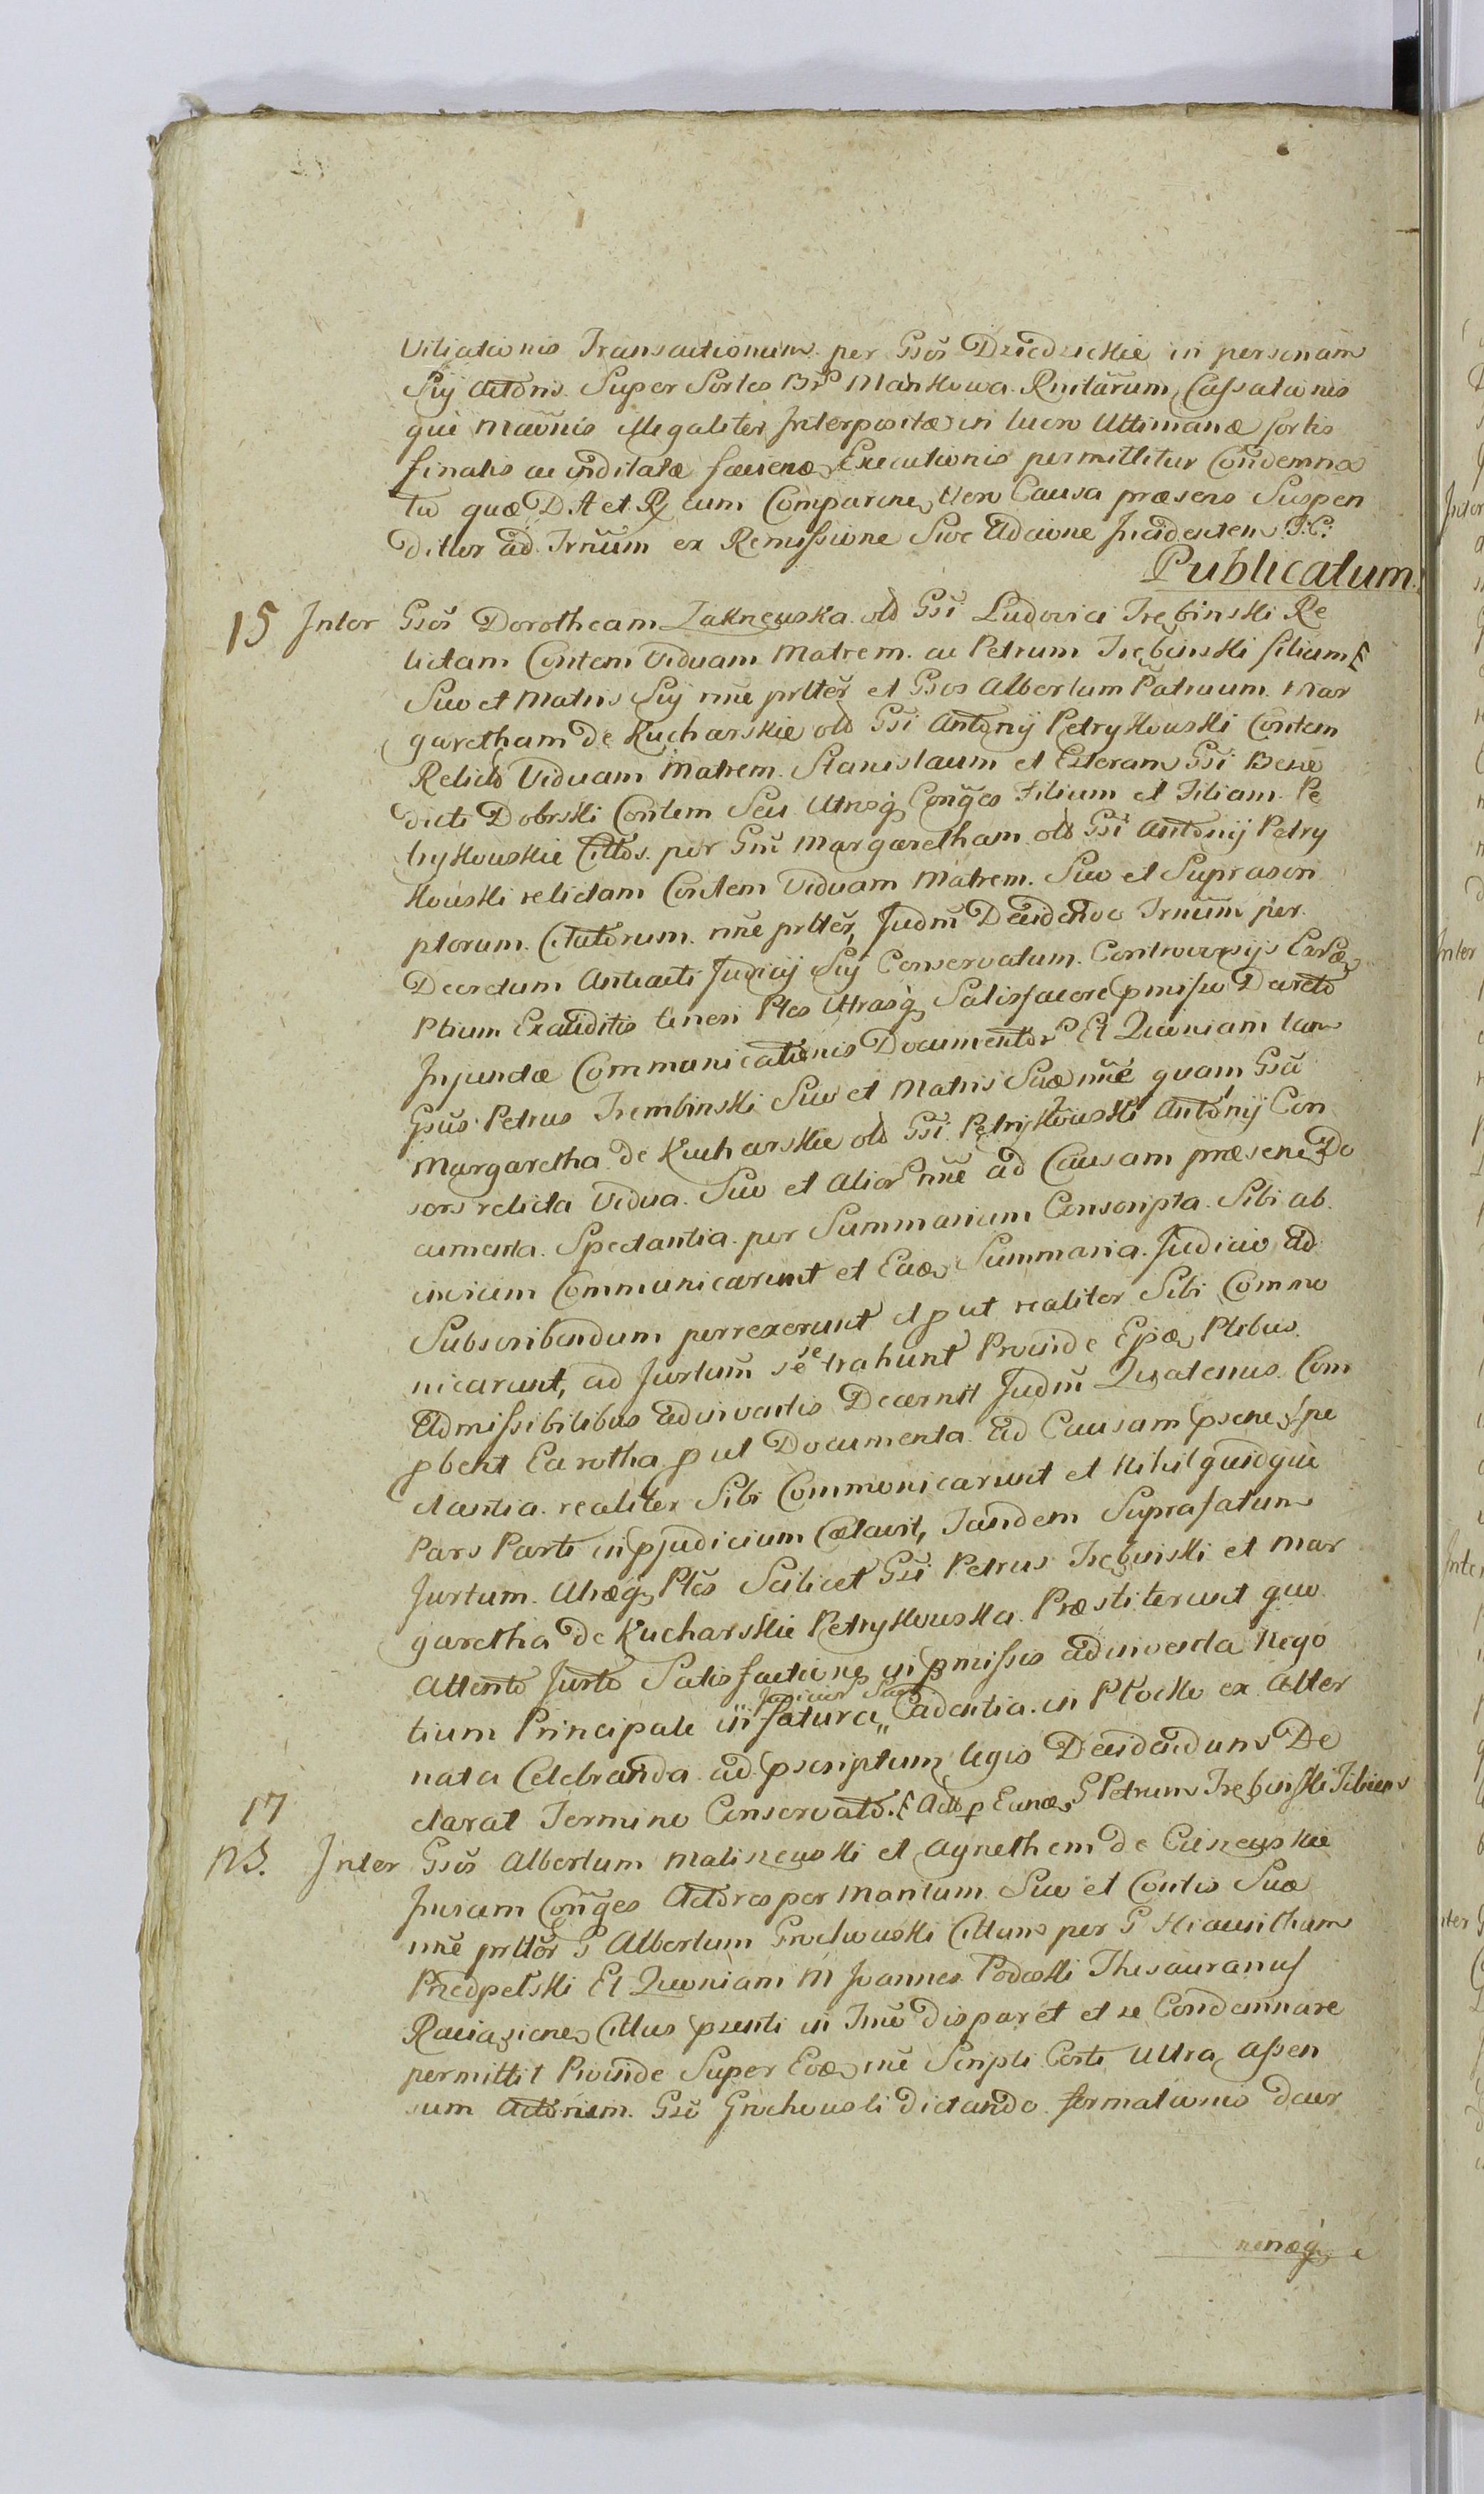 Viliationis Transactionum per Gsos Dziedzickie in personam
Sui Actoris Super Sortes Br. Mankowa Rnitarum Cassationis
que Maonis illegaliter Interpositæ in lucro Ultimanæ sortis
finalis ac inditatæ faciend Executionis permittitur Condemna
to quæ D. A et R cum Comparine Vero Causa præsens Suspen
ditur ad Trnum ex Remissione Sive Adcione Incidentem T. C.
Publicatum
15 Inter Gsos Dorotheam Zakrzewska olo Gsi Ludovici Trębinski Re
lictam Contem Viduam Matrem ac Petrum Trębinski filium
Suo et Matris Suj nne prltter et Gsos Albertum Patruum Mar
garetham de Kucharskie olo Gsi Antonij Petrykowski Contem
Relictō Viduam Matrem Stanislaum et Esteram Gsi Bene
dicti Dobrski Contem Seu Utrosq Conges Filium et Filiam Pe
trykowskie Cittos per Gm Margaretham olo Gsi Antonij Petry
kowski relictam Contem Viduam Matrem Suo et Suprascri
ptorum Citatorum nne prltter, Judm Decidendo Trnum per
Decretum Anteacti Judicij Suj Conservatum Controversijs Earde
Ptium Exauditis teneri Ptes Utrasq Satisfacere pmisso Decreto
Injunctæ Communicationis Documentor Et Quoniam tam
Gsus Petrus Trembinski Suo et Matris Suæ nne quam Gsa
Margaretha de Kucharskie olo Gsi Petrykowski Antonij Con
sors relicta Vidua Suo et Alior nne ad Causam præsene Do
cumenta Spectantia per Summarium Conscripta Sibi ab
invicem Communicarunt et Eade Summaria Judicio ad
Subscribendum porrexerunt et put realiter Sibi Commu
nicarunt, ad Jurtum sese trahunt Proinde Epsæ Ptibus
Admissibilibus adinventis Decernit Judm Quatenus Com
pbent Earotha put Documenta ad Causam psene spe
ctantia realiter Sibi Communicarunt et Nihil quidque
Pars Parti in pjudicium Celavit, Tandem Suprafatum
Jurtum Utræq Ptes Scilicet Gsi Petrus Trębinski et Mar
garetha de Kucharskie Petrykowska Præstiterunt quo
Attento Jurto Satisfactione in pmissis adinventa Nego
tium Principale in futura Judicior Suor Cadentia in Plocko ex Alter
nata Celebranda ad pscriptum legis Decidendum De
clarat Termino Conservato. Act p Eund G Petrum Trębinski Filium
17
NB. Inter Gsos Albertum Maliszewski et Agnethem de Ciszewskie
Invicem Conges Actores per Maritum Suo et Contis Suæ
nne prltter G Albertum Grochowski Cittum per G Hiacintham
Przedpelski Et Quoniam M Joannes Podoski Thesauranus
Raciazsiene Cittus psenti in Trno disparet et se Condemnare
permittit Proinde Super Eode nne Scripti Certi Ultra Assen
sum Actorium Gso Grochowski dictando formationis decer
nenæq